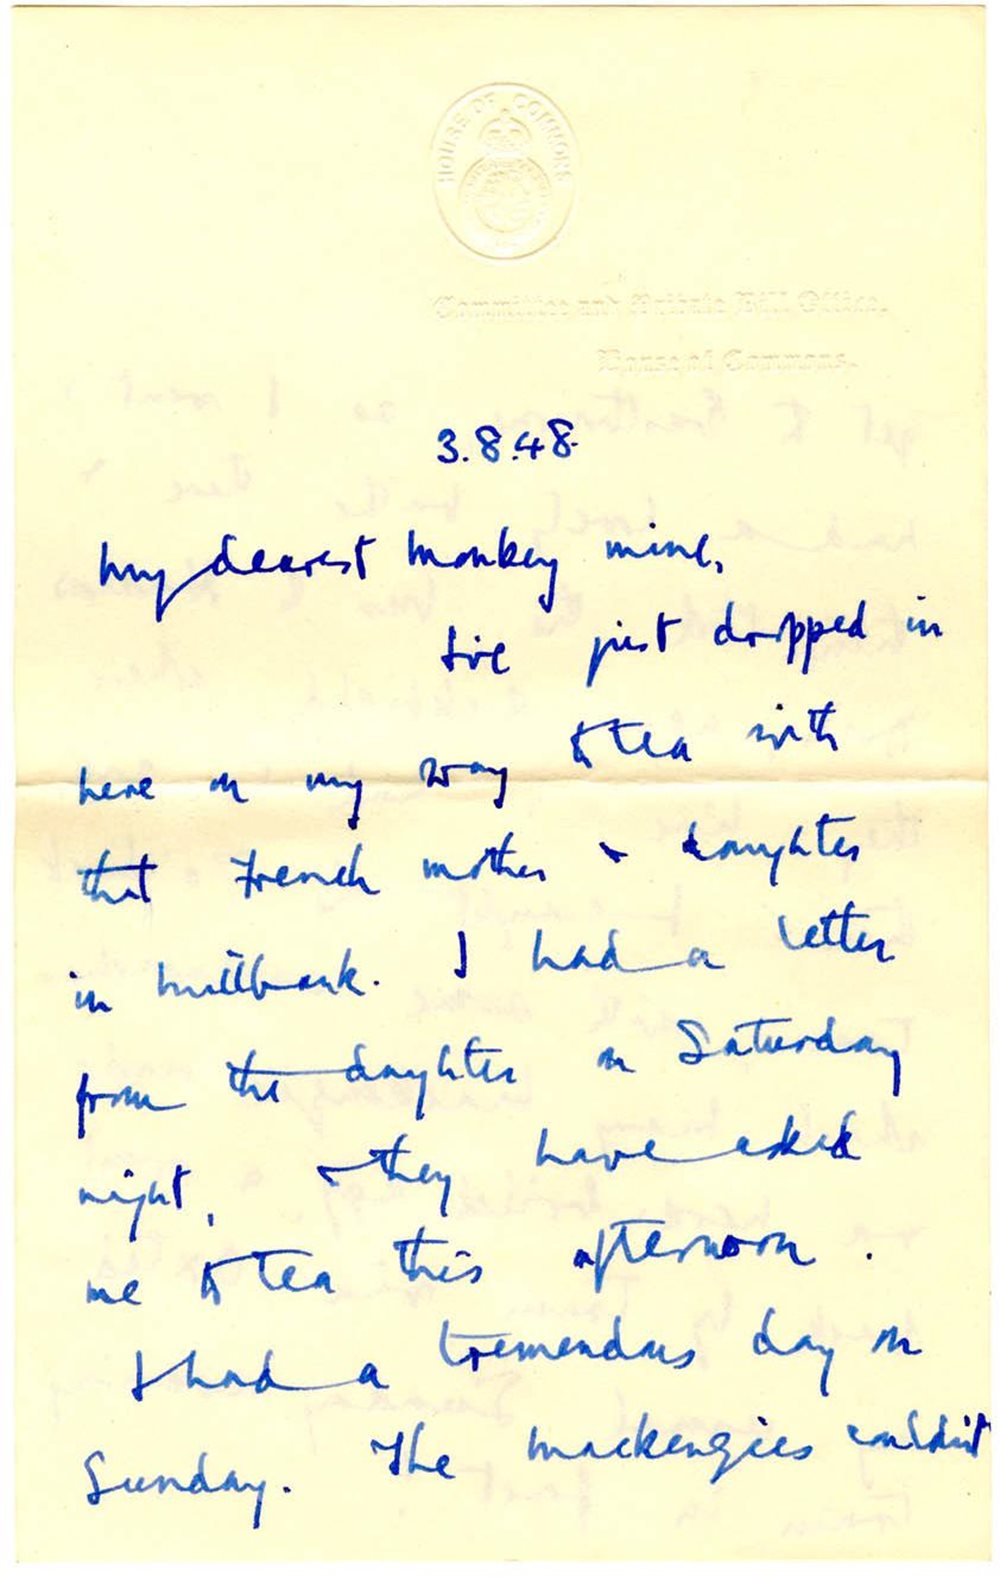 HOUSE OF COMMONS
Committee and Private Bill Office,
House of Commons.
3.8.48.
My dearest Monkey mine,
I've just dropped in
here on my way to tea with
that French mother & daughter
in Millbank. I had a letter
from the daughter on Saturday
night, & they have asked
me to tea this afternoon.
I had a tremendous day on
Sunday. The Mackenzies couldn't